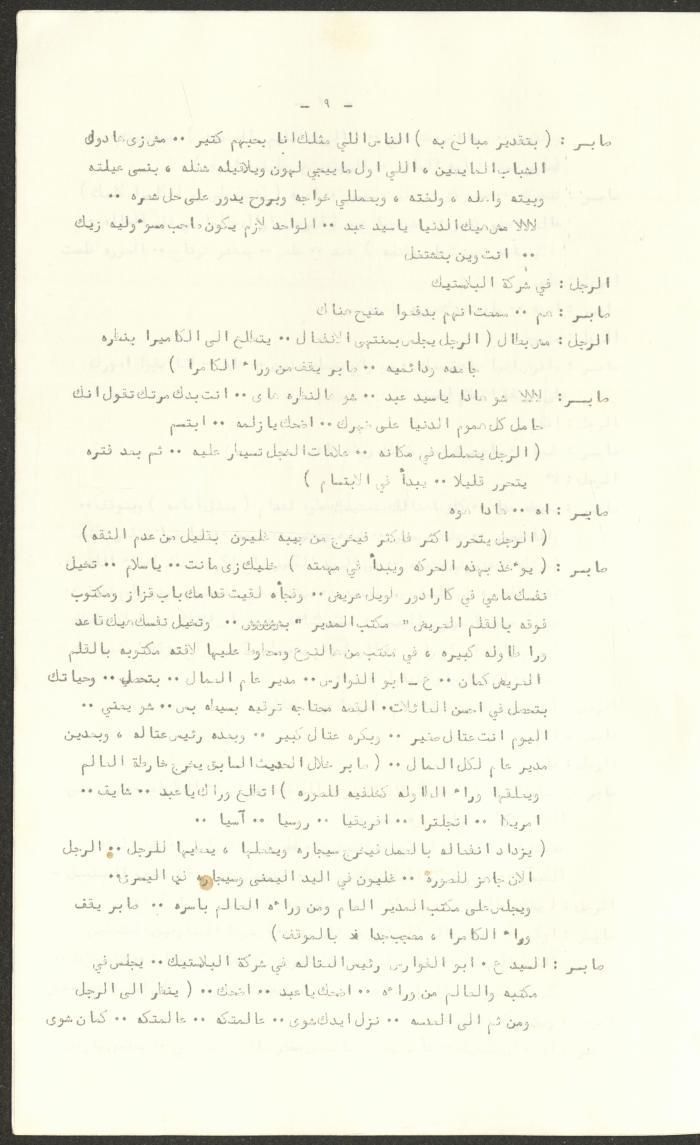 - ٩ -
صابر : ( بتقدير مبالغ به ) الناس اللي مثلك انا بحبهم كتير ٠٠ مش زى هادول
الشباب الضايعين ، اللي اول ما ييجي لهون ويلاقيله شغله ، بنسى عيلته
وبيته واهله ، ولغته ، وبعمللي خواجه وبروح يدور على حل شعره ٠٠
لالالا مش هيك الدنيا ياسيد عبد ٠٠ الواحد لازم يكون صاحب مسوءوليه زيك
٠٠ انت وين بتشتغل
الرجل : في شركة البلاستيك
صابر : هم ٠٠ سمعت انهم بدفعوا منيح هناك
الرجل : مش بطال ( الرجل يجلس بمنتهى الانفعال ٠٠ يتطلع الى الكاميرا بنظره
جامده ودائميه ٠٠ صابر يقف من وراء الكامرا )
صابر : لالالا شو هاذا ياسيد عبد ٠٠ شو هالنظره هاى ٠٠ انت بدك مرتك تقول انك
حامل كل هموم الدنيا على ظهرك ٠٠ اضحك يا زلمه ٠٠ ابتسم
( الرجل يتململ في مكانه ٠٠ علامات الخجل تسيطر عليه ٠٠ ثم بعد فتره
يتحرر قليلا ٠٠ يبدأ في الابتسام )
صابر : اه ٠٠ هاذا هوه
( الرجل يتحرر اكثر فاكثر فيخرج من جيبه غليون بقليل من عدم الثقه )
صابر : ( يوءخذ بهذه الحركه ويبدأ في مهمته ) خليك زى مانت ٠٠ ياسلام ٠٠ تخيل
نفسك ماشي في كارادور طويل عريض ٠٠ وفجأه لقيت قدامك باب قزاز ومكتوب
فوقه بالقلم العريض " مكتب المدير " ٠٠ وتخيل نفسك هيك قاعد
ورا طاوله كبيره ، في مكتب من هالنوع ومحطوط عليها لافته مكتوبه بالقلم
العريض كمان ٠٠ ع ـ ابو الفوارس ٠٠ مدير عام العمال ٠٠ بتحصل ٠٠ وحياتك
بتحصل في احسن العائلات ٠ القصه محتاجه ترقيه بسيطه بس ٠٠ شو يعني ٠٠
اليوم انت عتال صغير ٠٠ وبكره عتال كبير ٠٠ وبعده رئيس عتاله ، وبعدين
مدير عام لكل العمال ٠٠ ( صابر خلال الحديث السابق يخرج خارطة العالم
ويعلقها وراء الطاوله كخلفيه للصوره ) اتطلع وراك ياعبد ٠٠ شايف ٠٠
امريكا ٠٠ انجلترا ٠٠ افريقيا ٠٠ روسيا ٠٠ آسيا ٠٠
( يزداد انفعاله بالعمل فيخرج سيجاره ويشعلها ، يعطيها للرجل ٠٠ الرجل
الان جاهز للصورة ٠٠ غليون في اليد اليمنى وسيجاره في اليسرى ٠٠
ويجلس على مكتب المدير العام ومن وراءه العالم باسره ٠٠ صابر يقف
وراء الكامرا ، معجب جدا بالموقف )
صابر : السيد ع ٠ ابو الفوارس رئيس العتاله في شركة البلاستيك ٠٠ يجلس في
مكتبه والعالم من وراءه ٠٠ اضحك ياعبد ٠٠ اضحك ٠٠ ( ينظر الى الرجل
ومن ثم الى العدسه ٠٠ نزل ايدك شوى ٠٠ عالمتكه ٠٠ عالمتكه ٠٠ كمان شوى